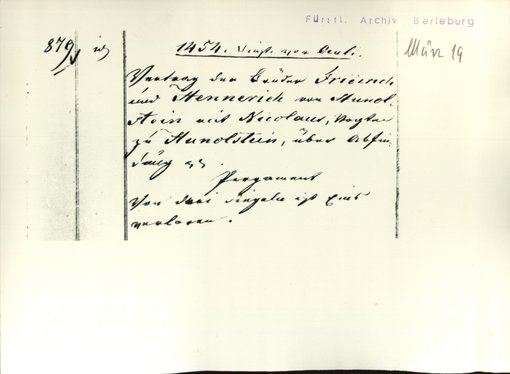 Fürstl. Archiv Berleburg
879
1454. Dinst. von Oculi.
März 19
Vertrag der Brüder Friedrich
und Hennerich von Hunol-
stein mit Nicolaus, Vogten
zu Hunolstein, über Abfin-
dung
Pergament
Von drei Siegeln ist Eins
verloren.